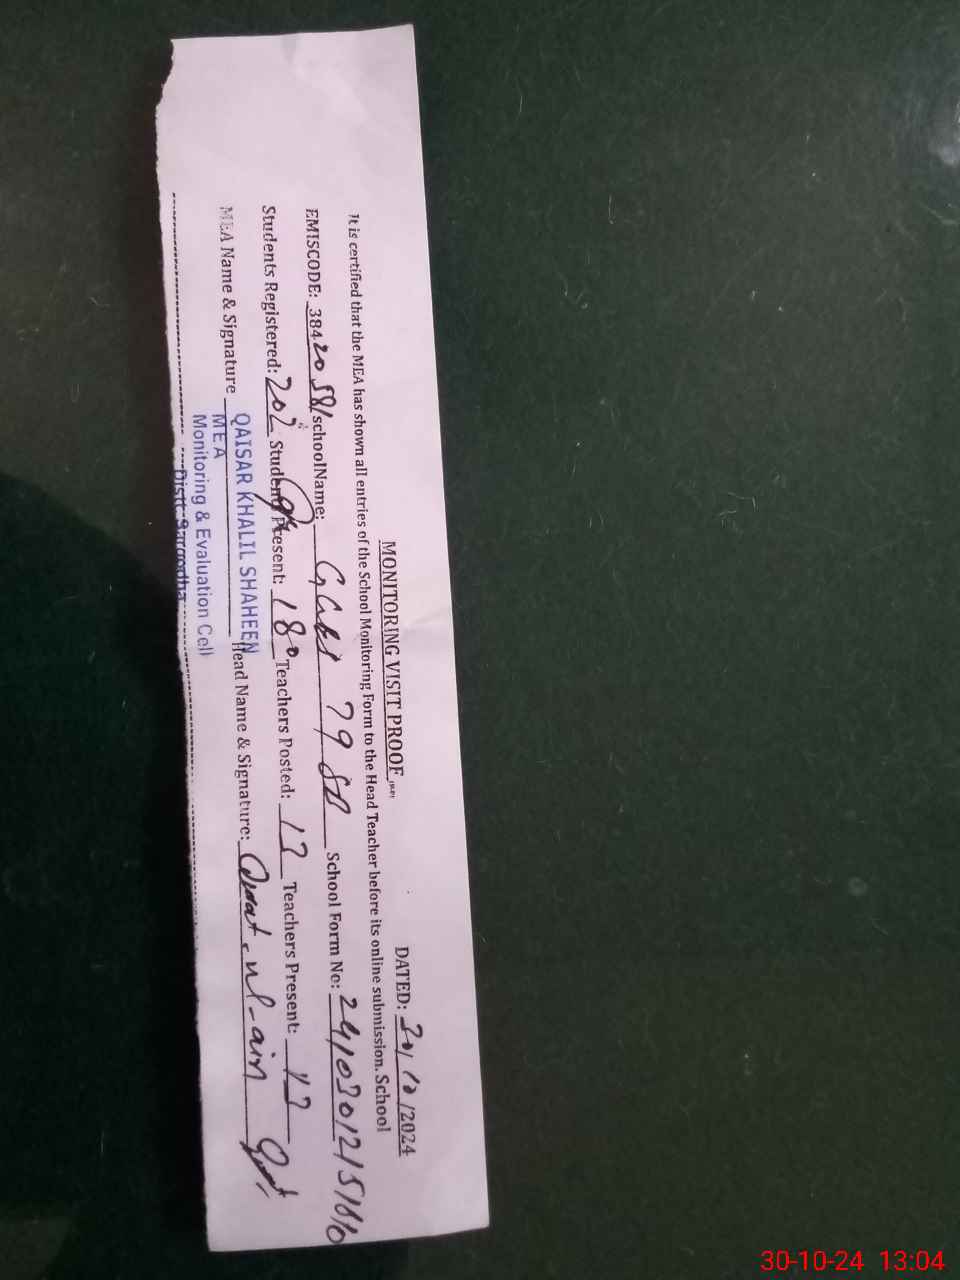 MONITORING VISIT PROOF
DATED: 30/10/2024
It is certified that the MEA has shown all entries of the School Monitoring Form to the Head Teacher before its online submission. School
EMISCODE: 38420581 schoolName: GGHS 79 SB School Form No:
Students Registered: 202 Student Present: 180 Teachers Posted: 17 Teachers Present: 17
MEA Name & Signature QAISAR KHALIL SHAHEEN Head Name & Signature: Qurat-ul-ain
MEA
Monitoring & Evaluation Cell
Distt: Sargodha
30-10-24 13:04